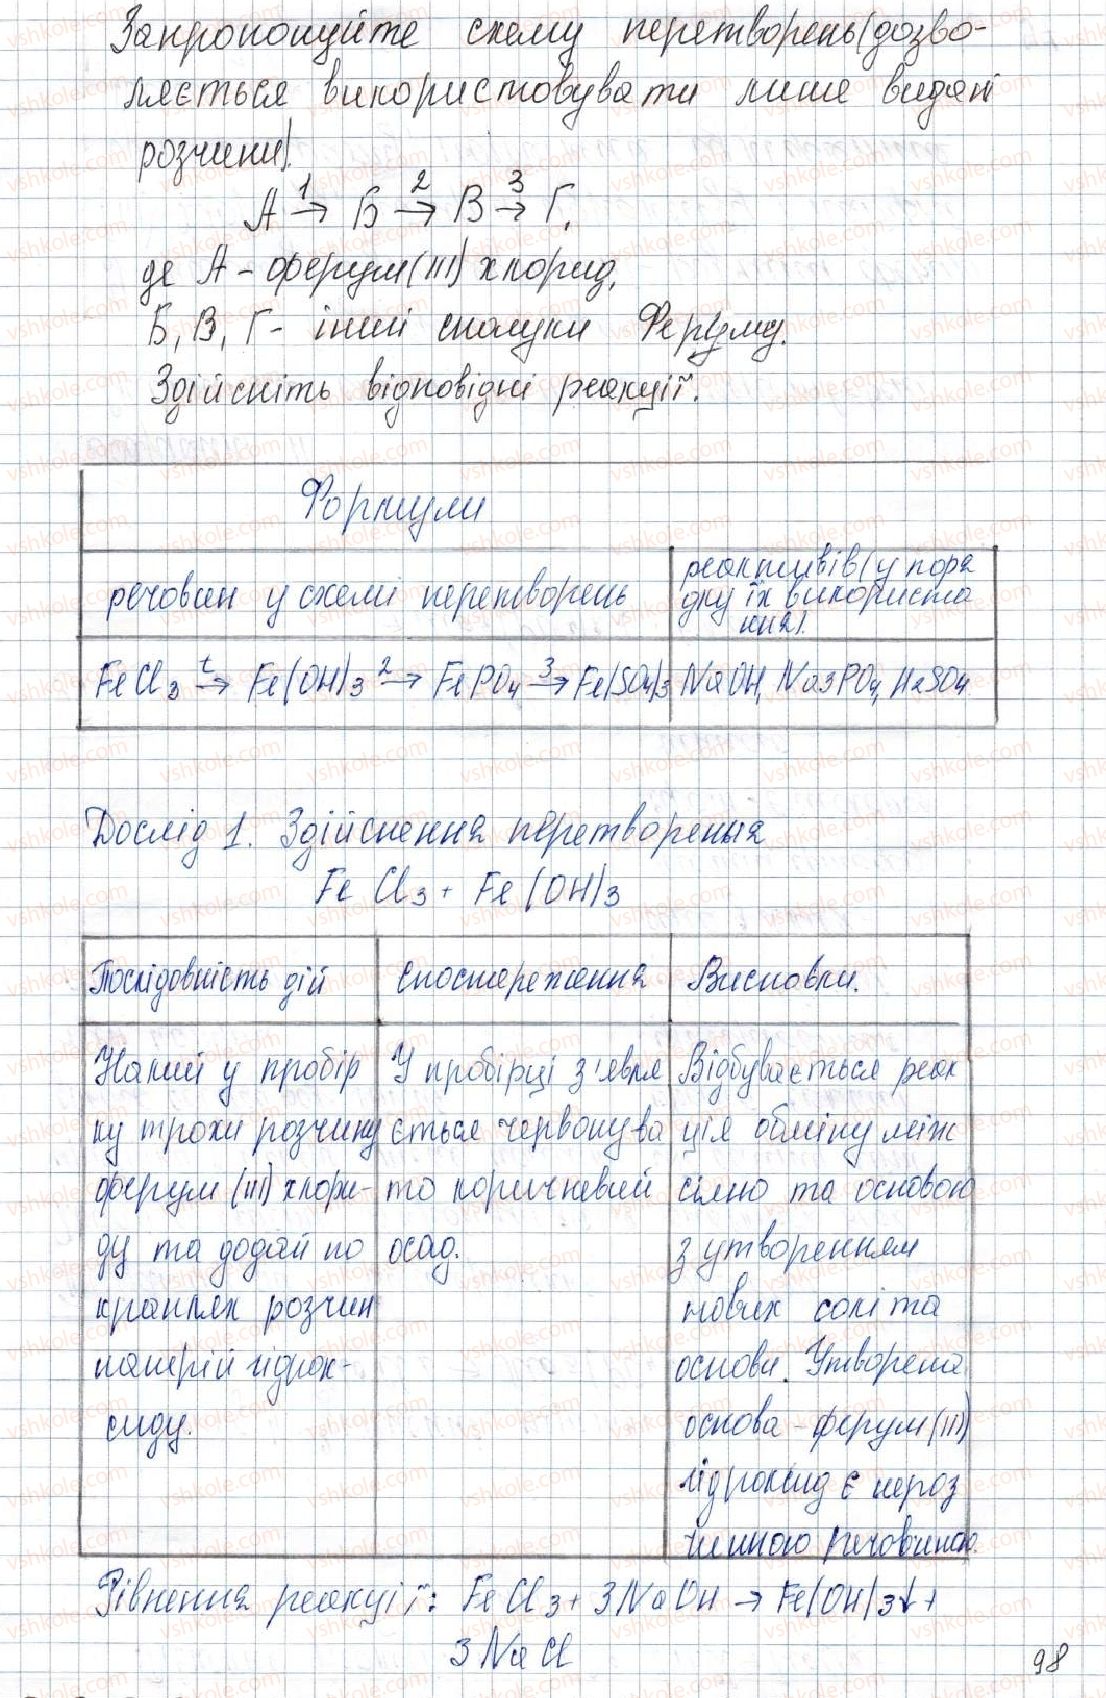 Запропонуйте схему перетворень(дозво-
ляється використовувати лише видані
розчини).
А 1→ Б 2→ В 3→ Г,
де А - ферум(III) хлорид,
Б, В, Г - інші сполуки Феруму.
Здійсніть відповідні реакції.
Формули
речовин у схемі перетворень
реактивів(у поря
дку їх використа
ння).
FeCl3 t→ Fe(OH)3 2→ FePO4 3→ Fe(SO4)3
NaOH, Na3PO4, H2SO4
Дослід 1. Здійснення перетворення
FeCl3 + Fe(OH)3
Послідовність дій
Спостереження
Висновки.
Налий у пробір
ку трохи розчину
ферум (III) хлори-
ду та додай по
краплях розчин
натрій гідрок-
сиду.
У пробірці з'явля
ється червонува
то коричневий
осад.
Відбувається реак
ція обміну між
сіллю та основою
з утворенням
нових солі та
основи. Утворена
основа - ферум(III)
гідроксид є нероз
чинною речовиною.
Рівнення реакції: FeCl3 + 3NaOH → Fe(OH)3↓ +
3NaCl
98